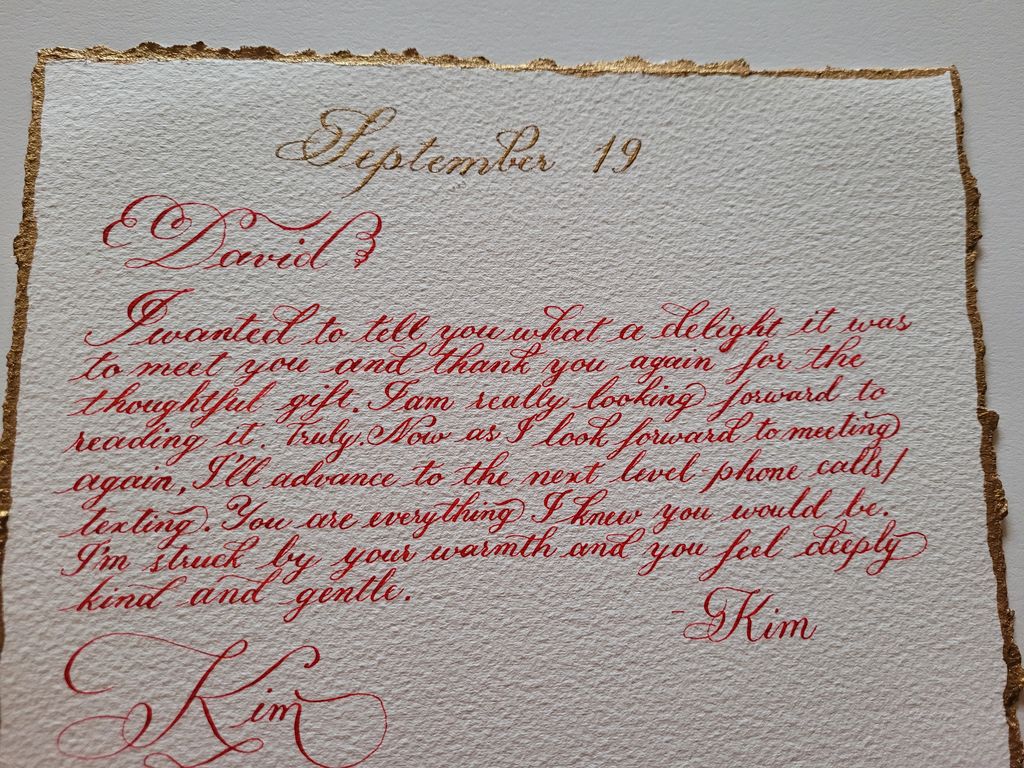 September 19
David
I wanted to tell you what a delight it was
to meet you and thank you again for the
thoughtful gift. I am really looking forward to
reading it. Truly. Now as I look forward to meeting
again, I'll advance to the next level-phone calls/
texting. You are everything I knew you would be.
I'm struck by your warmth and you feel deeply
kind and gentle.
- Kim
Kim